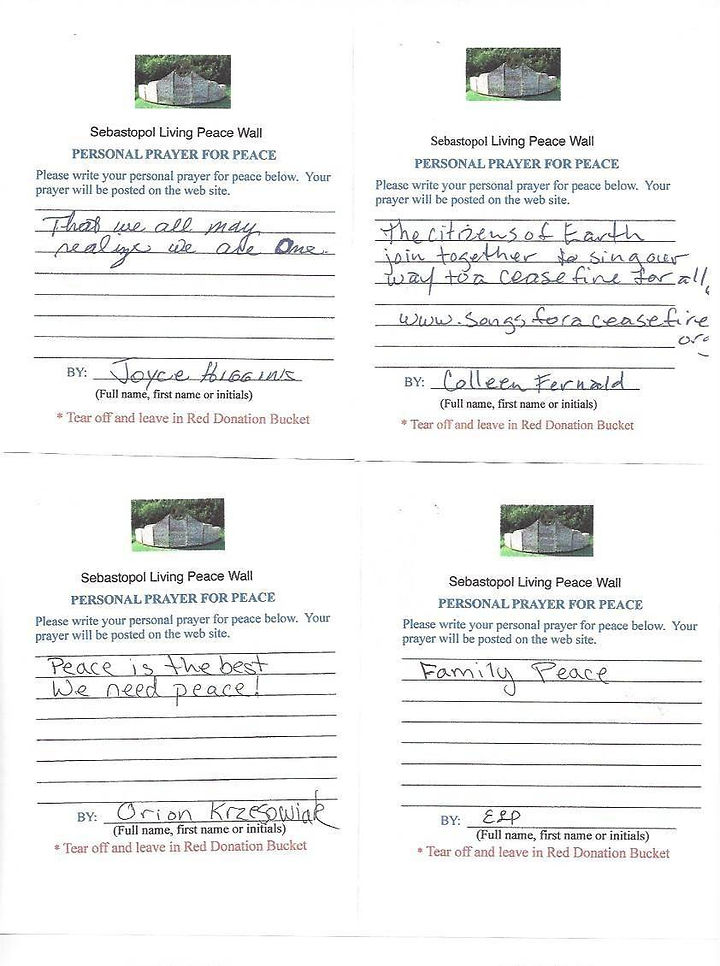 Sebastopol Living Peace Wall
PERSONAL PRAYER FOR PEACE
Please write your personal prayer for peace below. Your
prayer will be posted on the web site.
That we all may
realize we are One.
BY: Joyce HIGGINS
(Full name, first name or initials)
* Tear off and leave in Red Donation Bucket
Sebastopol Living Peace Wall
PERSONAL PRAYER FOR PEACE
Please write your personal prayer for peace below. Your
prayer will be posted on the web site.
The citizens of Earth
join together to sing our
way to a cease fire for all,
www.songsforaceasefire
org
BY: Colleen Fernald
(Full name, first name or initials)
* Tear off and leave in Red Donation Bucket
Sebastopol Living Peace Wall
PERSONAL PRAYER FOR PEACE
Please write your personal prayer for peace below. Your
prayer will be posted on the web site.
Peace is the best
We need peace!
BY: Orion Krzesowiak
(Full name, first name or initials)
* Tear off and leave in Red Donation Bucket
Sebastopol Living Peace Wall
PERSONAL PRAYER FOR PEACE
Please write your personal prayer for peace below. Your
prayer will be posted on the web site.
Family Peace
BY:
(Full name, first name or initials)
* Tear off and leave in Red Donation Bucket